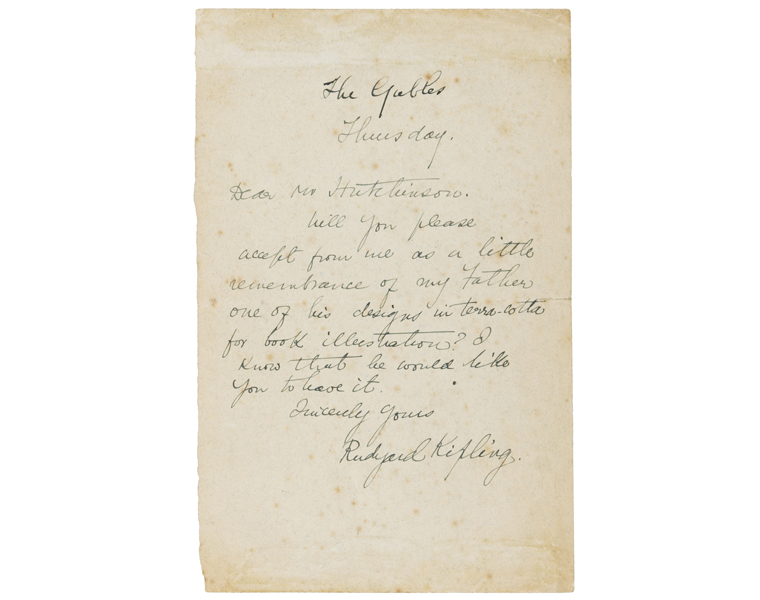 The Gables
Thursday.
Dear Mr Hutchinson.
Will you please
accept from me as a little
remembrance of my Father
one of his designs in terra-cotta
for book illustration? I
know that he would like
you to have it.
Sincerely yours
Rudyard Kipling.